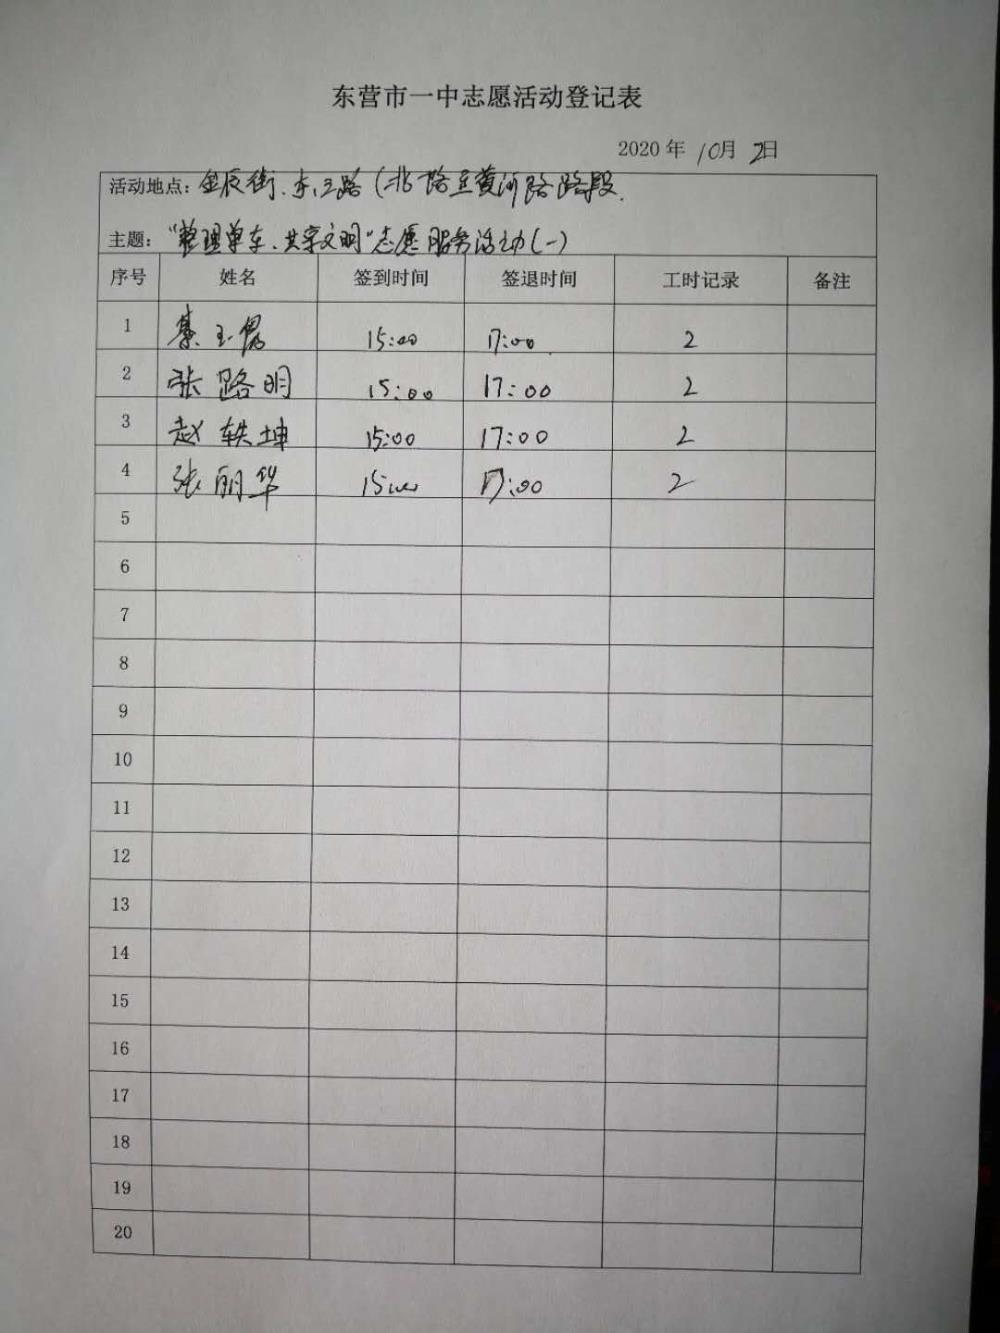 东营市一中志愿活动登记表
2020 年 10月 2日
活动地点：金辰街、东三路（北一路至黄河路路段
主题：“整理单车、共享文明”志愿服务活动(一)
序号 姓名 签到时间 签退时间 工时记录 备注
1 綦玉 15:00 17:00 2
2 张路明 15:00 17:00 2
3 赵轶坤 15:00 17:00 2
4 张丽华 15:00 17:00 2
5
6
7
8
9
10
11
12
13
14
15
16
17
18
19
20